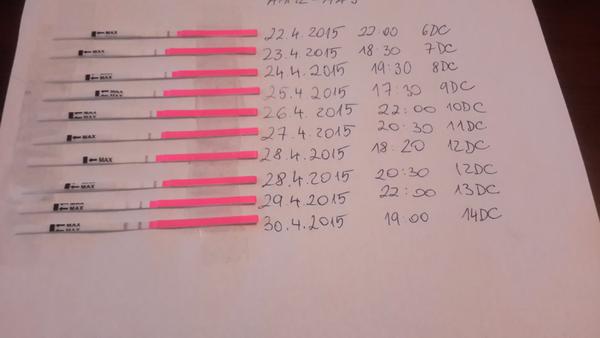 MAX 22.4.2015 22:00 6DC
MAX 23.4.2015 18:30 7DC
MAX 24.4.2015 19:30 8DC
MAX 25.4.2015 17:30 9DC
MAX 26.4.2015 22:00 10DC
MAX 27.4.2015 20:30 11DC
MAX 28.4.2015 18:20 12DC
MAX 28.4.2015 20:30 12DC
MAX 29.4.2015 22:00 13DC
MAX 30.4.2015 19:00 14DC